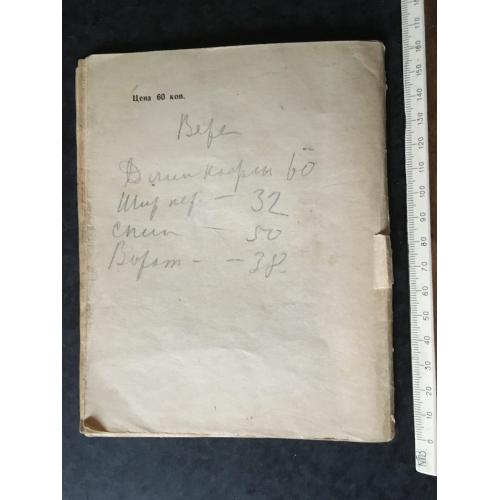 Цена 60 коп.
Вере
Длин кофты 60
Шир пер — 32
спин — 50
Ворот - - 38
0 10 20 30 40 50 60 70 80 90 100 110 120 130 140 150 160 170